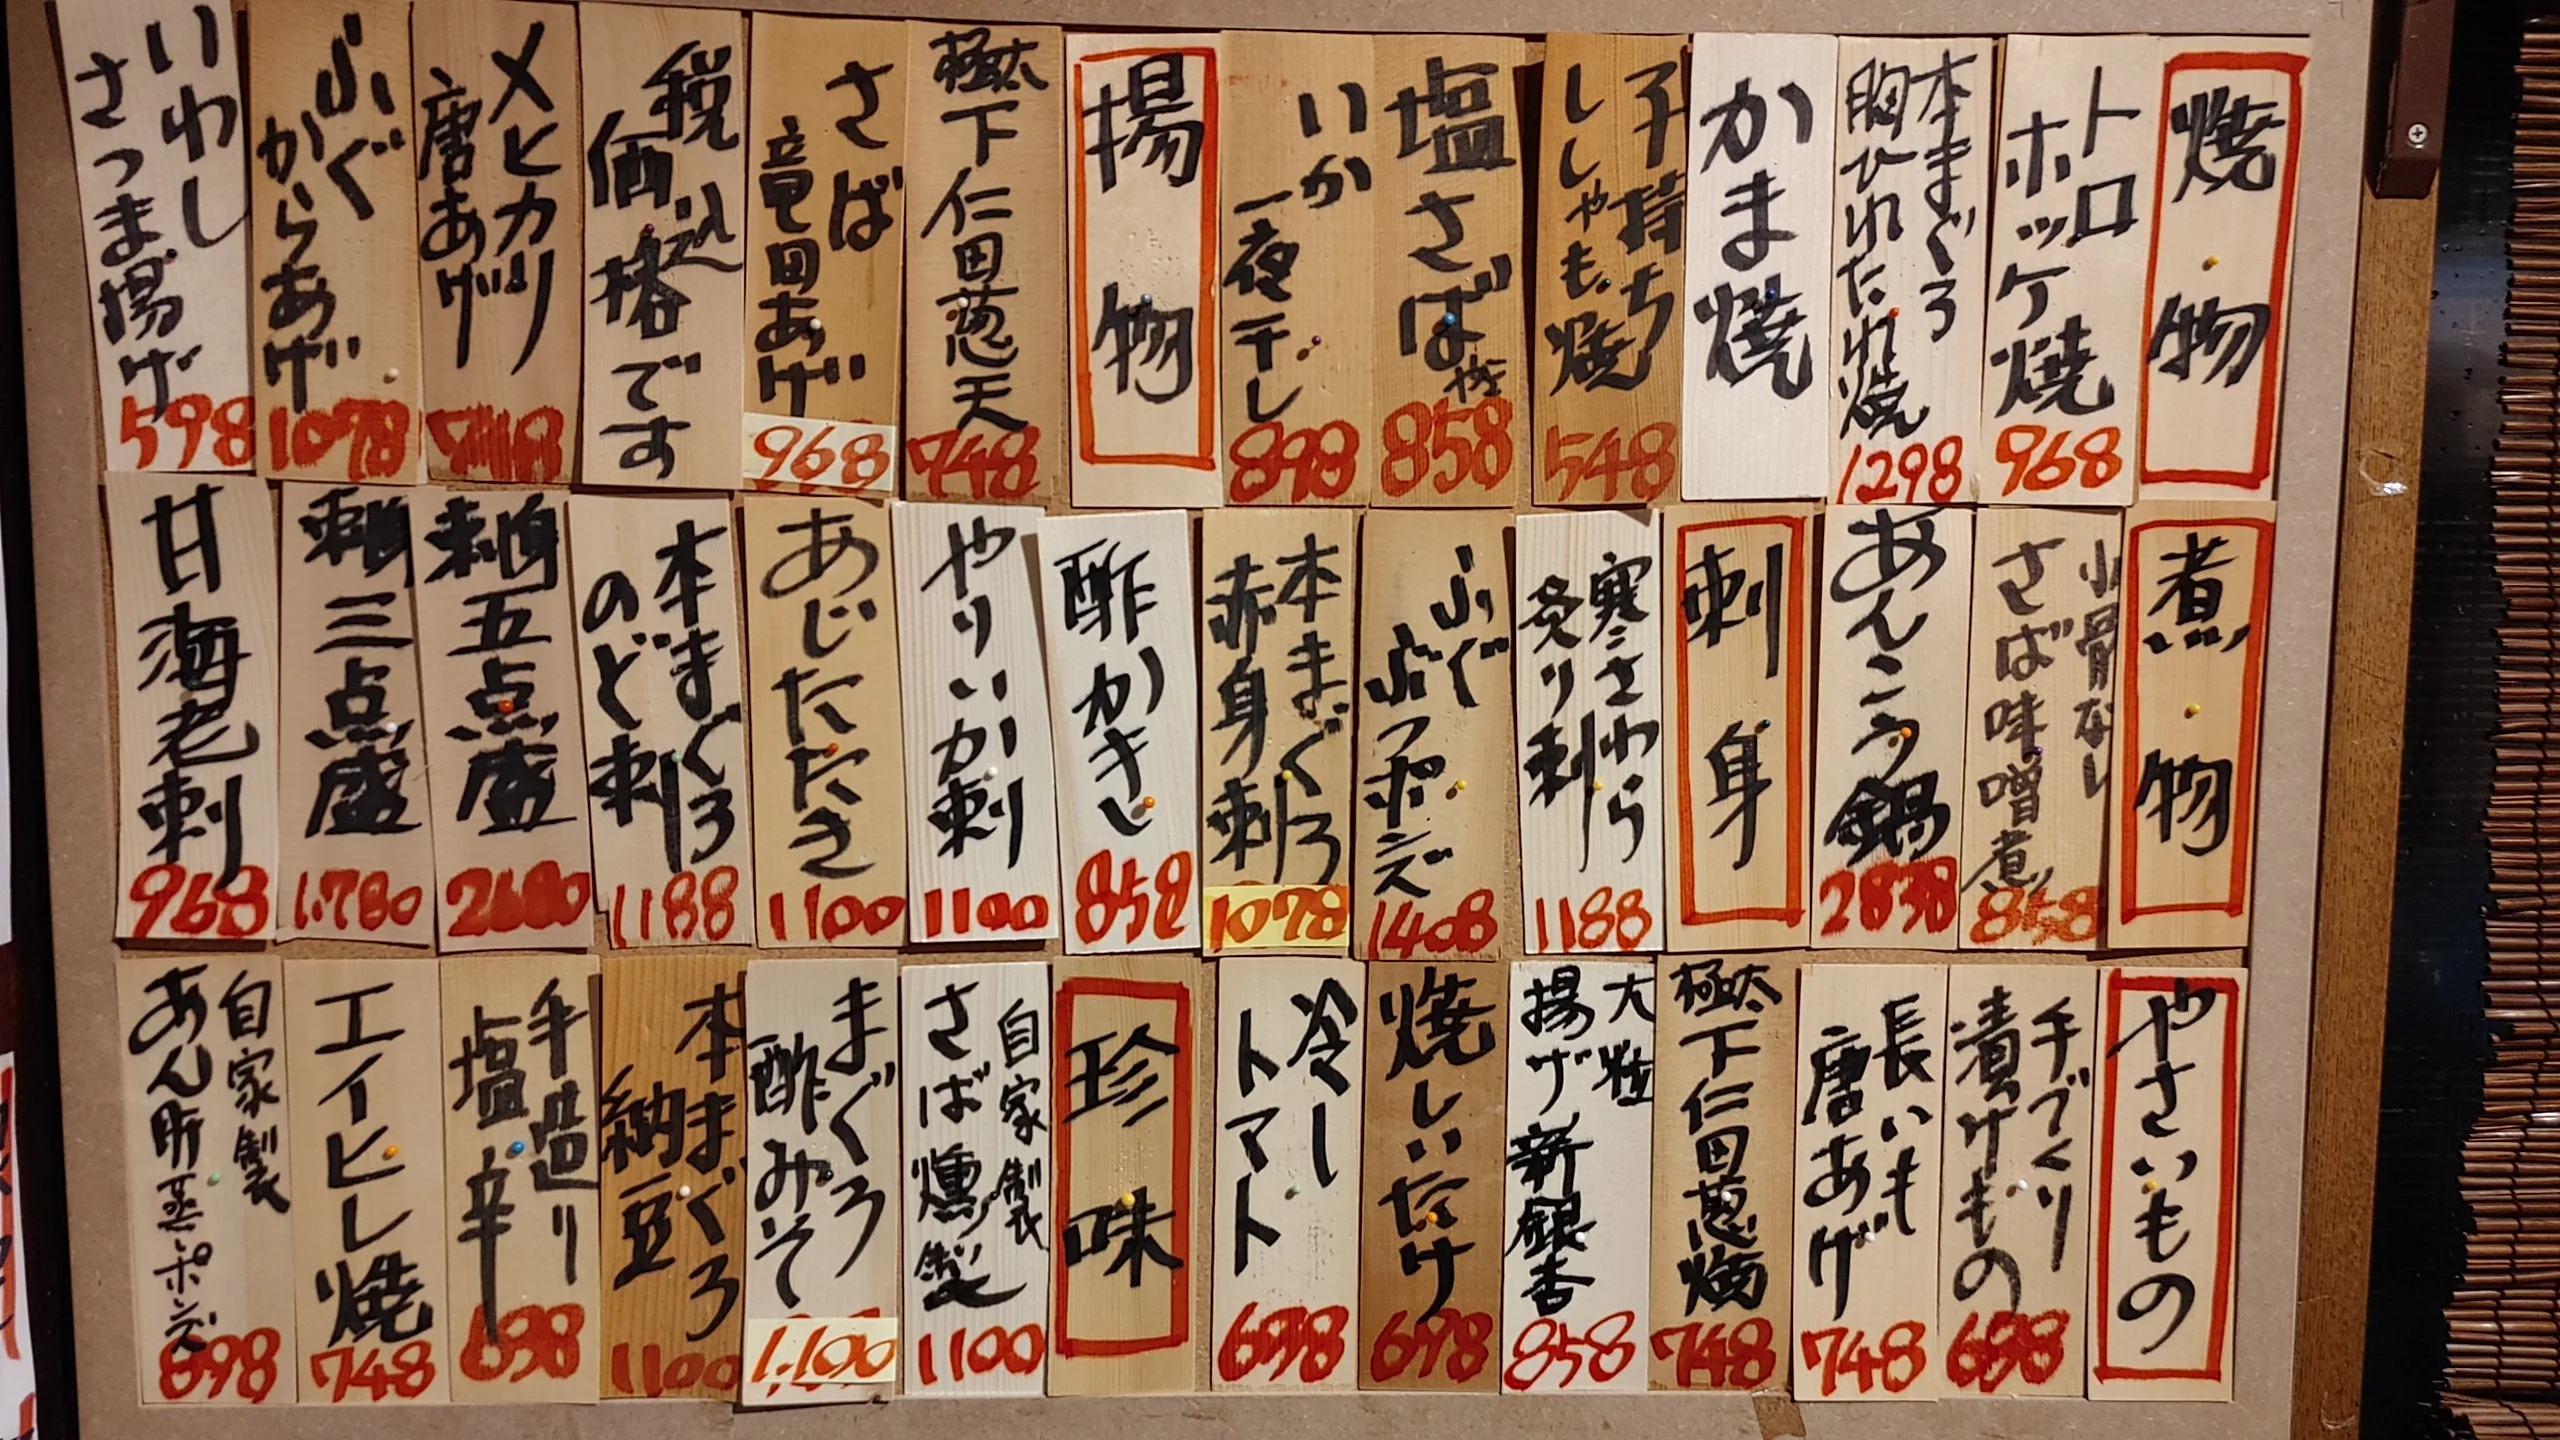 焼物
トロ
ホッケ焼
968
本まぐろ
胸ひれたれ焼
1298
かま焼
子持ち
ししゃも焼
548
塩さば焼
858
いか
一夜干し
898
揚物
極太
下仁田葱天
748
さば
竜田あげ
968
税込
価格です
メヒカリ
唐あげ
748
ふぐ
からあげ
1078
いわし
さつま揚げ
598
煮物
小骨なし
さば味噌煮
858
あんこう鍋
2838
刺身
寒さわら
炙り刺
1188
ふぐ
ぶつポンズ
1408
本まぐろ
赤身刺
1078
酢かきし
858
やりいか刺
1100
あじたたき
1100
本まぐろ
のど刺
1188
刺身五点盛
2680
刺身三点盛
1780
甘海老刺
968
やさいもの
手づくり
漬けもの
698
長いも
唐あげ
748
極太
下仁田葱焼
748
大粒
揚げ新銀杏
858
焼しいたけ
698
冷し
トマト
698
珍味
自家製
さば燻製
1100
まぐろ
酢みそ
本まぐろ
納豆
1100
手造り
塩辛
698
エイヒレ焼
748
自家製
あん肝蒸しポンズ
898